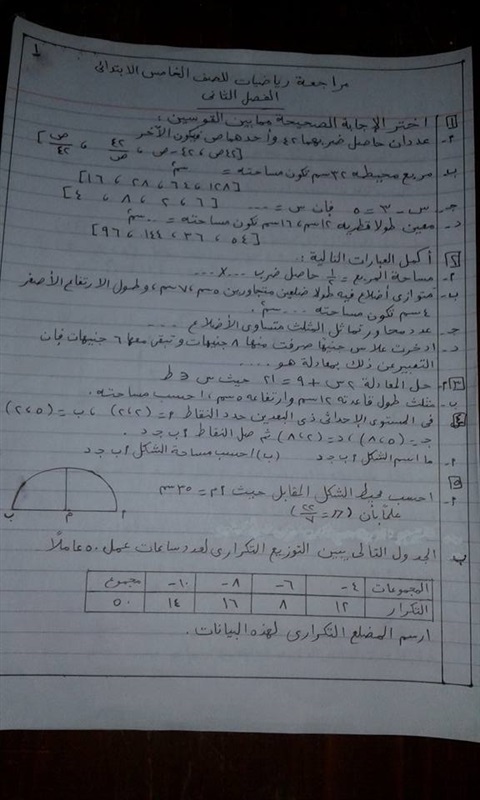 ١
مراجعة رياضيات للصف الخامس الابتدائى
الفصل الثانى
١ اختر الإجابة الصحيحة مما بين القوسين :
أ- عددان حاصل ضربهما ٤٢ وأحدهما ص فيكون الآخر
[ ٤٢ص ، ٤٢ - ص ، ٤٢/ص ، ص/٤٢ ]
ب- مربع محيطه ٣٢ سم تكون مساحته = سم٢
[ ١٢٨ ، ٦٤ ، ٢٨ ، ١٦ ]
جـ- س - ٣ = ٥ فإن س = ... [ ٦ ، ٢ ، ٨ ، ٤ ]
د- معين طولا قطريه ١٢سم ، ١٦سم تكون مساحته = ... سم٢
[ ٥٤ ، ٣٦ ، ١٤٤ ، ٩٦ ]
٢ أكمل العبارات التالية :
أ- مساحة المربع = ١/٢ حاصل ضرب ... × ...
ب- متوازى أضلاع فيه طولا ضلعين متجاورين ٥سم ، ٧سم ، وطول الارتفاع الأصغر
٤ سم تكون مساحته .... سم٢ .
جـ- عدد محاور تماثل المثلث متساوى الأضلاع ....
د- ادخرت علا س جنيها صرفت منها ٨ جنيهات وتبقى معها ٦ جنيهات فإن
التعبير عن ذلك بمعادلة هو ....
٣ أ- حل المعادلة ٢س + ٩ = ٢١ حيث س ∈ ط
ب- مثلث طول قاعدته ١٢سم وارتفاعه ٥سم ، احسب مساحته .
٤ فى المستوى الإحداثى ذى البعدين حدد النقاط أ = (٢،٢) ، ب = (٢،٥)
جـ = (٥،٨) ، د = (٢،٨) ثم صل النقاط أ ب جـ د .
أ- ما اسم الشكل أ ب جـ د (ب) احسب مساحة الشكل أ ب جـ د
٥
أ- احسب محيط الشكل المقابل حيث أم = ٣٥ سم
علماً بأن (π = ٢٢/٧)
ب م أ
ب الجدول التالى يبين التوزيع التكرارى لعدد ساعات عمل ٥٠ عاملاً
المجموعات ٤- ٦- ٨- ١٠- مجموع
التكرار ١٢ ٨ ١٦ ١٤ ٥٠
ارسم المضلع التكرارى لهذه البيانات .